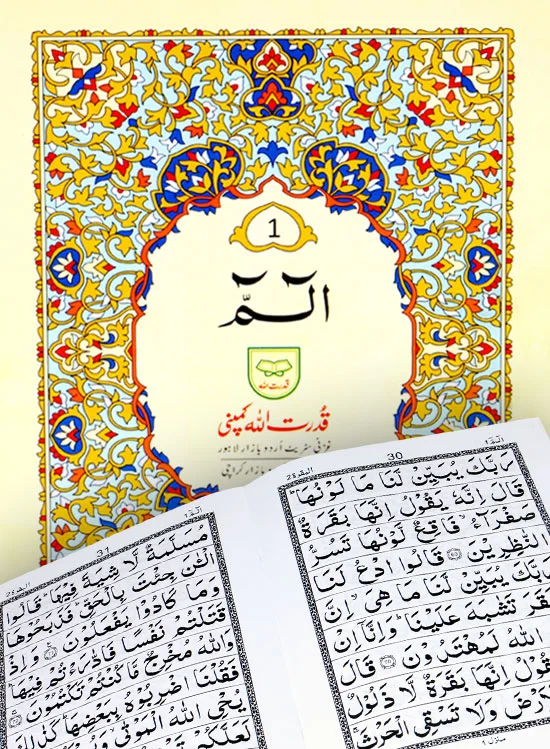 1
الٓمّٓ
قدرت اللہ
قُدرت اللہ کمپنی
غزنی سٹریٹ اُردو بازار لاہور
بازار کراچی
الٓمّٓ ١ 30 البقرة ٢
رَبَّكَ يُبَيِّنْ لَّنَا مَا لَوْنُهَا ؕ
قَالَ اِنَّهٗ يَقُوْلُ اِنَّهَا بَقَرَةٌ
صَفْرَآءُ ۙ فَاقِعٌ لَّوْنُهَا تَسُرُّ
النّٰظِرِيْنَ ﴿٦٩﴾ قَالُوا ادْعُ لَنَا
رَبَّكَ يُبَيِّنْ لَّنَا مَا هِيَ ۙ اِنَّ
بَقَرَ تَشٰبَهَ عَلَيْنَا ؕ وَاِنَّاۤ اِنْ
اللّٰهُ لَمُهْتَدُوْنَ ﴿٧٠﴾ قَالَ
قُوْلُ اِنَّهَا بَقَرَةٌ لَّا ذَلُوْلٌ
اَرْضَ وَلَا تَسْقِى الْحَرْثَ ۚ
منزل
الٓمّٓ ١ 31 البقرة ٢
مُسَلَّمَةٌ لَّا شِيَةَ فِيْهَا ؕ قَالُوا
الْئٰنَ جِئْتَ بِالْحَقِّ ؕ فَذَبَحُوْهَا
وَمَا كَادُوْا يَفْعَلُوْنَ ﴿٧١﴾ وَاِذْ
قَتَلْتُمْ نَفْسًا فَادّٰرَءْتُمْ فِيْهَا ؕ
وَاللّٰهُ مُخْرِجٌ مَّا كُنْتُمْ تَكْتُمُوْنَ ﴿٧٢﴾
فَقُلْنَا اضْرِبُوْهُ بِبَعْضِهَا ؕ كَذٰلِكَ
يُحْىِ اللّٰهُ الْمَوْتٰى
لَعَلَّكُمْ